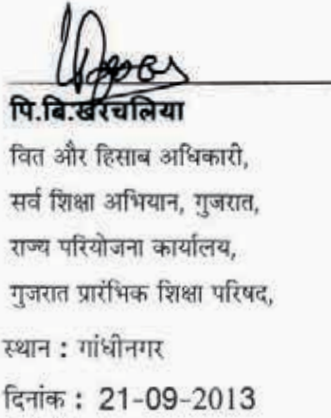 पि.बि.खरचलिया
वित और हिसाब अधिकारी,
सर्व शिक्षा अभियान, गुजरात,
राज्य परियोजना कार्यालय,
गुजरात प्रारंभिक शिक्षा परिषद,
स्थान : गांधीनगर
दिनांक : 21-09-2013